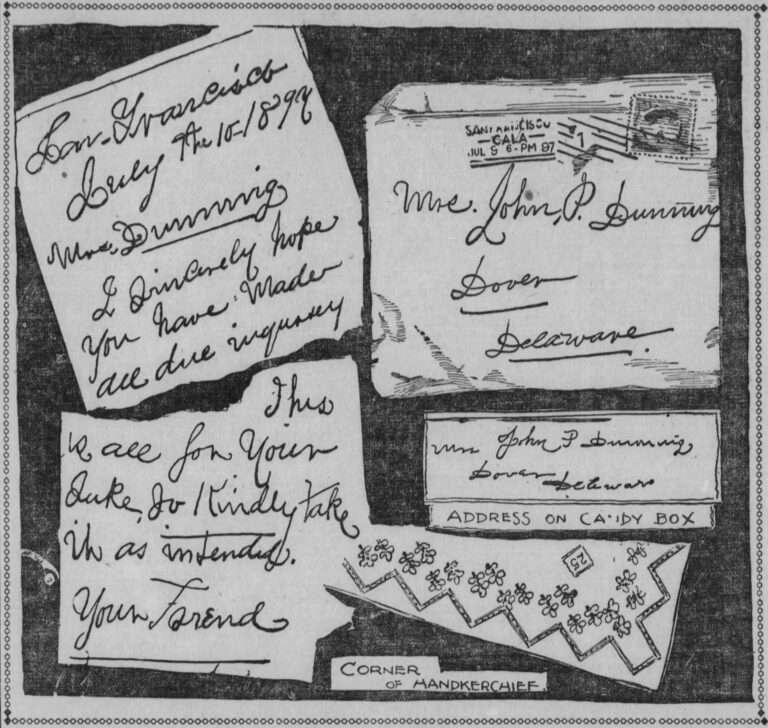 San-Francisco
July the 10-1897
Mrs. Dunning
I Sincerely hope
you have Made
all due inqurey
This
is all for Your
Sake, So Kindly take
it as intended.
Your Friend
SAN FRANCISCO
CALA
JUL 9 6-PM 97
1
Mrs. John, P. Dunning
Dover
Delaware.
Mrs John P Dunning
Dover
Delaware
ADDRESS ON CANDY BOX
25
CORNER
OF HANDKERCHIEF.